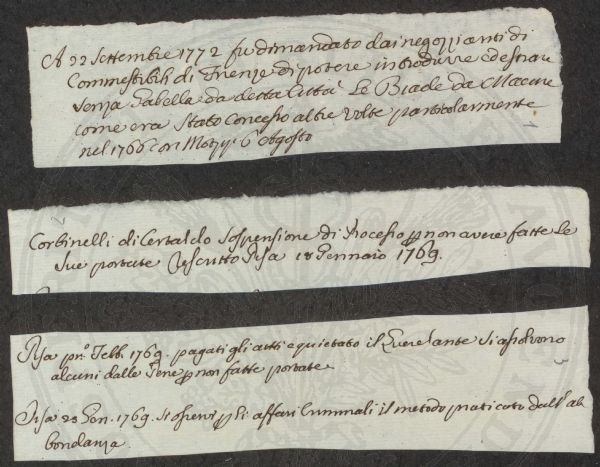 A 22 Settembre 1772 fu dimandato dai negozianti di
Commestibili di Firenze di potere introdurre ed estrarre
senza Gabella da detta Città le Biade da Macine
come era Stato Concesso altre volte particolarmente
nel 1766 con Mot: 6 Agosto
1
2
Corbinelli di Certaldo Sospensione di Processo p non avere fatte le
sue portate Rescritto Pisa 18 Gennaio 1769.
Pisa pr.º Febb. 1769. pagati gli atti e quietato il Querelante si assolvono
alcuni dalle Pene p non fatte portate.
3
Pisa 23 Gen. 1769. si osservi p gli affari Criminali il metodo praticato dall' ab
bondanza